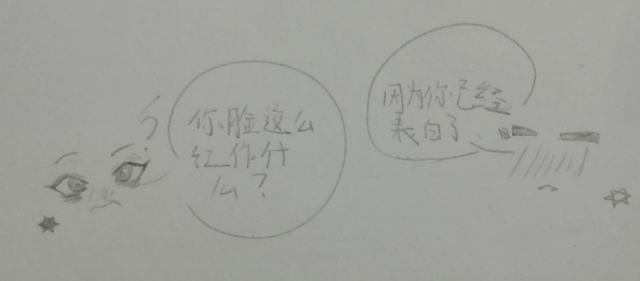 你脸这么
红作什
么？
因为你已经
表白了